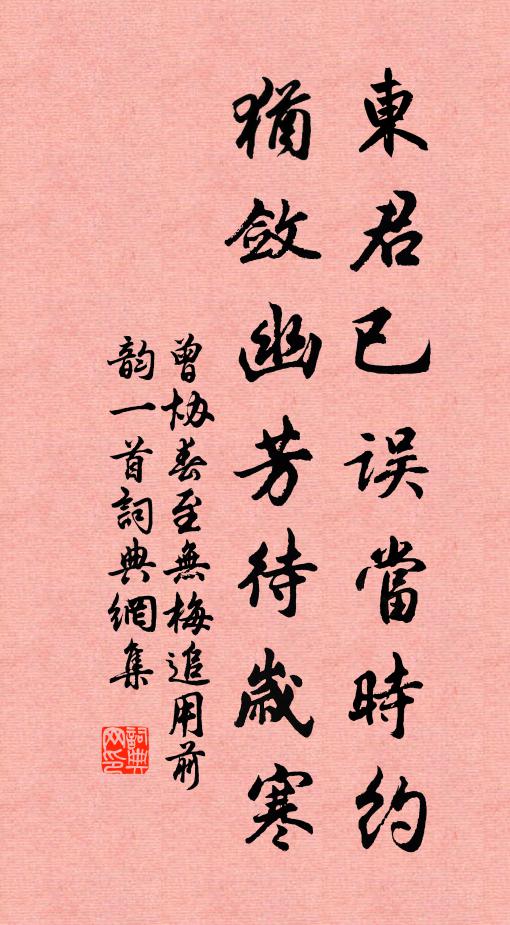 東君已误當時約
猶斂幽芳待歲寒
曾协春至無梅追用前
韵一首詞典網集
詞典网印